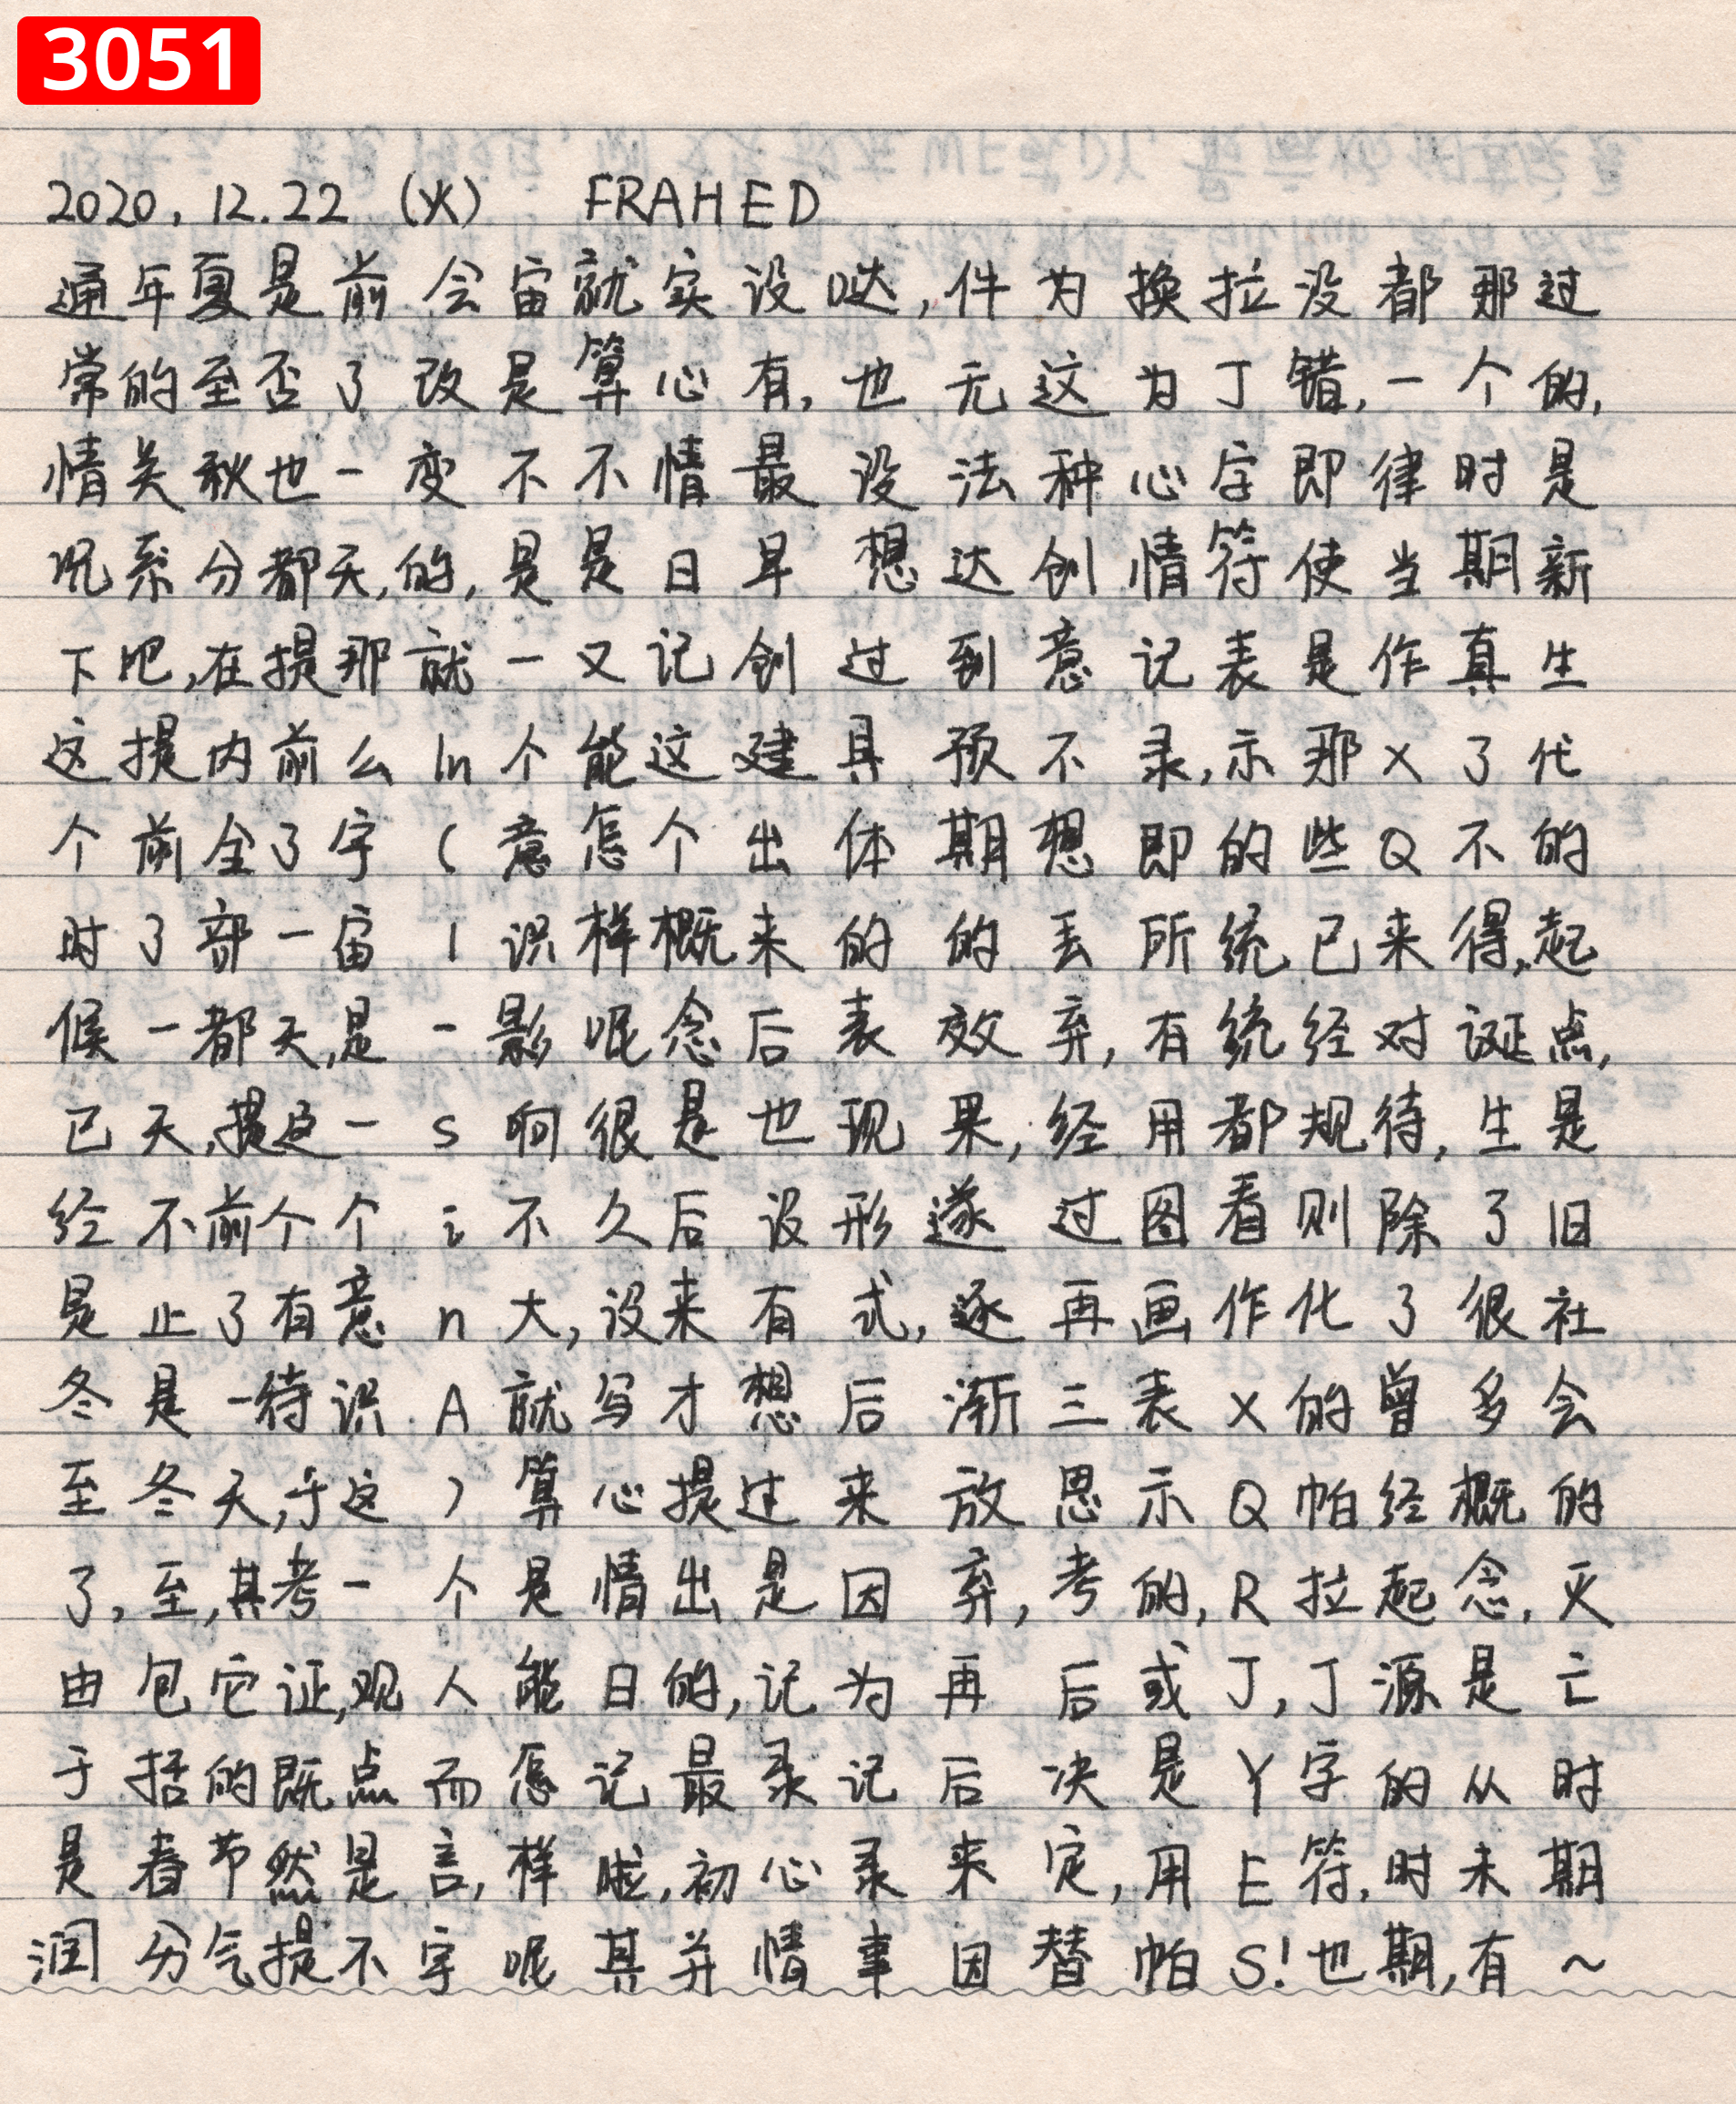 3051
2020.12.22 (火) FRAHED
通年夏是前会宙就实设哒,件为换拉没都那过
常的至否了改是算心有,也无这为丁错,一个的,
情关秋也一变不不情最设法种心字即律时是
况系分都天,的,是是日早想达创情符使当期新
下吧,在提那就一又记创过到意记表是作真生
这提内前么ln个能这建具预不录,示那X了代
个前全了宇(意怎个出体期想即的些Q不的
时了部一宙l识样概来的的丢所统已来得,起
候一都天,是一影呢念后表效弃,有统经对诞点,
已天,提这一s响很是也现果,经用都规待,生是
经不前个个i不久后设形遂过图看则除了旧
是止了有意n大,设来有式,逐再画作化了很社
冬是一待识A就写才想后渐三表X的曾多会
至冬天,于这)算心提过来放思示Q帕经概的
了,至,其考一个是情出是因弃,考的,R拉起念,灭
由包它证,观人能日的,记为再后或丁,丁源是亡
于括的既点而怎记最录记后决是Y字的从时
是春节然是言,样啦,初心录来定,用E符,时未期
润分气提不宇呢其并情事因替帕S!也期,有~